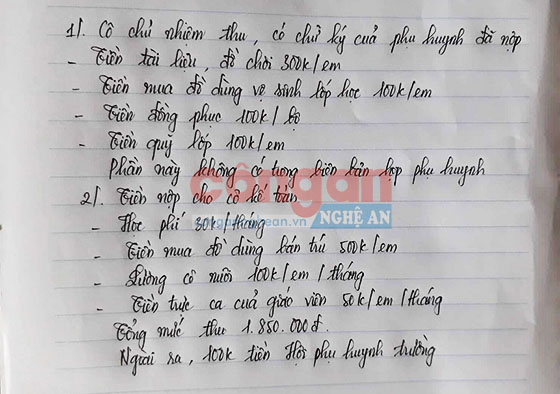 1/. Cô chủ nhiệm thu, có chữ ký của phụ huynh đã nộp
- Tiền tài liệu, đồ chơi 300k/em
- Tiền mua đồ dùng vệ sinh lớp học 100k/em
- Tiền đồng phục 100k/bộ
- Tiền quỹ lớp 100k/em
Phần này không có trong biên bản họp phụ huynh
côngan
2/. Tiền nộp cho cô kế toán
NGHỆ AN
- Học phí 30k/tháng
- Tiền mua đồ dùng bán trú 500k/em
- Lương cô nuôi 100k/em/tháng
- Tiền trực ca của giáo viên 50k/em/tháng
Tổng mức thu 1.850.000đ.
Ngoài ra, 100k tiền Hội phụ huynh trường